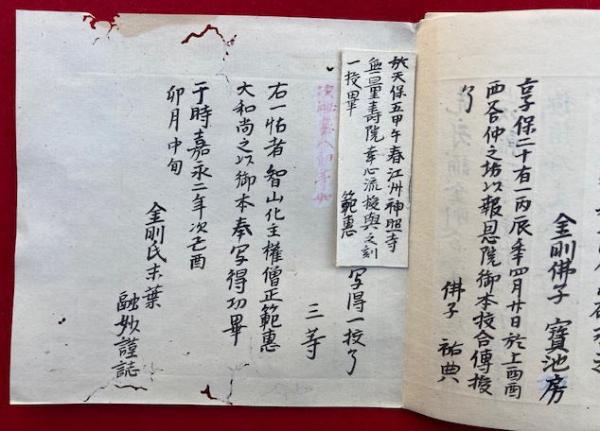 金剛佛子 寶池房
享保二十有一丙辰季四月廿日於上西酉
西谷仲之坊以報恩院御本挍合傳授
了 佛子 祐典
於天保五甲午春江州神照寺
無量壽院幸心流擬與之刻
一挍畢 範惠
写得一挍了
三等
右一帖者智山化主權僧正範惠
大和尚之以御本奉写得功畢
于時嘉永二年次己酉
卯月中旬
金剛氏末葉
融妙謹誌